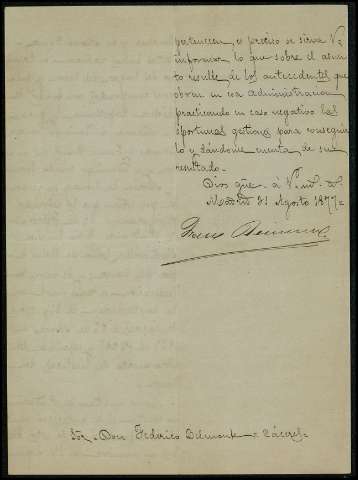 pertenecen, es preciso se sirva V.
informar lo que sobre el asun-
to resulte de los antecedentes que
obran en esa Administracion
practicando en caso negativo las
oportunas gestiones para conseguir-
lo y dándome cuenta de su
resultado.
Dios gũe. á V. m. a.
Madrid 31 Agosto 1877=
Sor. Don Federico Belmonte = Cáceres=